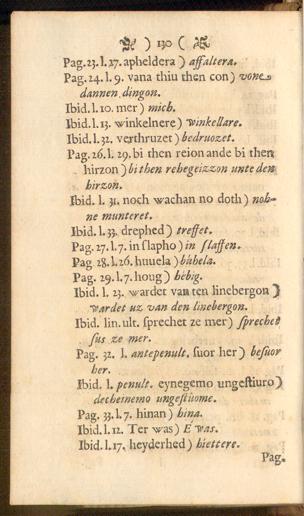 ) 130 (
Pag. 23. l. 27. apheldera ) affaltera.
Pag. 24. l. 9. vana thiu then con ) vone
dannen dingon.
Ibid. l. 10. mer ) mich.
Ibid. l. 13. winkelnere ) winkellare.
Ibid. l. 32. verthruzet ) bedruozet.
Pag. 26. l. 29. bi then reion ande bi then
hirzon ) bi then rehegeizzon unte den
hirzon.
Ibid. l. 31. noch wachan no doth ) noh-
ne munteret.
Ibid. l. 33. drephed ) treffet.
Pag. 27. l. 7. in slapho ) in slaffen.
Pag 28. l. 26. huuela ) húbela.
Pag. 29. l. 7. houg ) hébig.
Ibid. l. 23. wardet van ten linebergon )
wardet uz van den linebergon.
Ibid. lin. ult. sprechet ze mer ) sprechet
sus ze mer.
Pag. 32. l. antepenult. suor her ) besuor
her.
Ibid. l. penult. eynegemo ungestiuro )
decheinemo ungestiuome.
Pag. 33. l. 7. hinan ) hina.
Ibid. l. 12. Ter was ) E was.
Ibid. l. 17. heyderhed ) hiettere.
Pag.